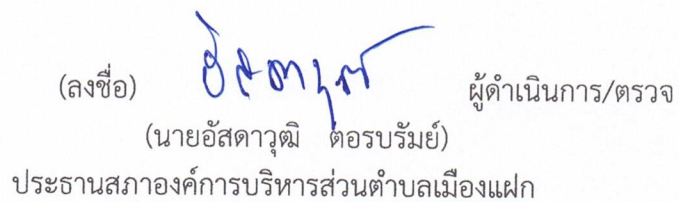 (ลงชื่อ) อัสดาวุฒิ ผู้ดำเนินการ/ตรวจ
(นายอัสดาวุฒิ ตอรบรัมย์)
ประธานสภาองค์การบริหารส่วนตำบลเมืองแฝก